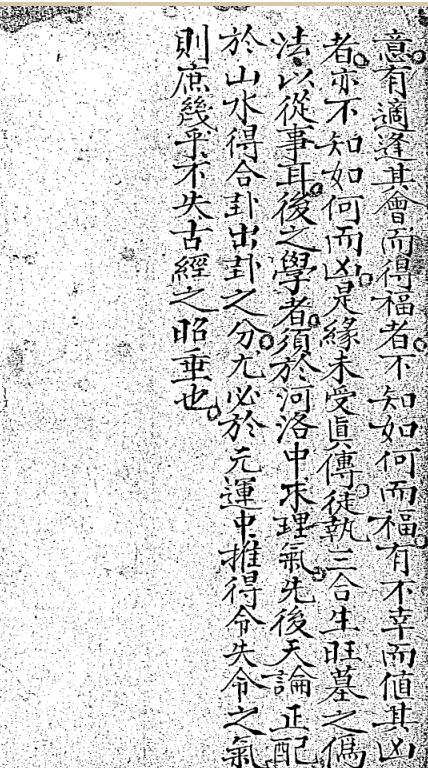 意。有適逢其會而得福者。不知如何而福。有不幸而值其凶
者。亦不知如何而凶。是緣未受眞傳。徒執三合生旺墓之僞
法以從事耳。後之學者。須於河洛中求理氣。先後天論正配
於山水得合卦出卦之分。尤必於元運中推得令失令之氣。
則庶幾乎不失古經之昭垂也。